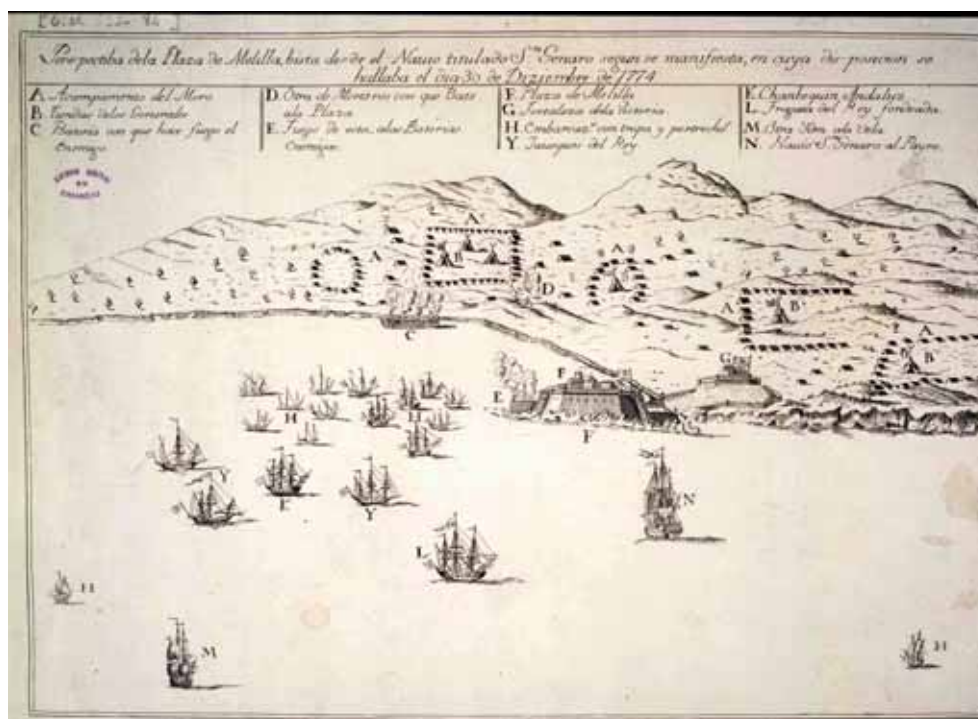 Perspectiba dela Plaza de Melilla, bista desde el Nauio titulado Sⁿ Genaro segun se manifiesta, en cuya disposicion se
hallaba el dia 30 de Diziembre de 1774
A Acampamento del Moro
B Tiendas delos Generales
C Bateria con que haze fuego el
Enemigo
D. Otra de Morteros con que Bate
ala Plaza
E. Fuego de esta, alas Baterias
Enemigas
F. Plaza de Melilla
G. Fortaleza dela Victoria
H. Embarcaz.ˢ con tropa y pertrechos
Y. Jaueques del Rey
K. Chambequin Andaluz
L. Fragata del Rey fondeada
M. Otra Ydm ala Vela
N. Nauio Sⁿ Genaro al Payro
A
A
B
A
D
A
B
A
B
C
G
E
F
F
H
H
Y
K
Y
N
L
H
M
H